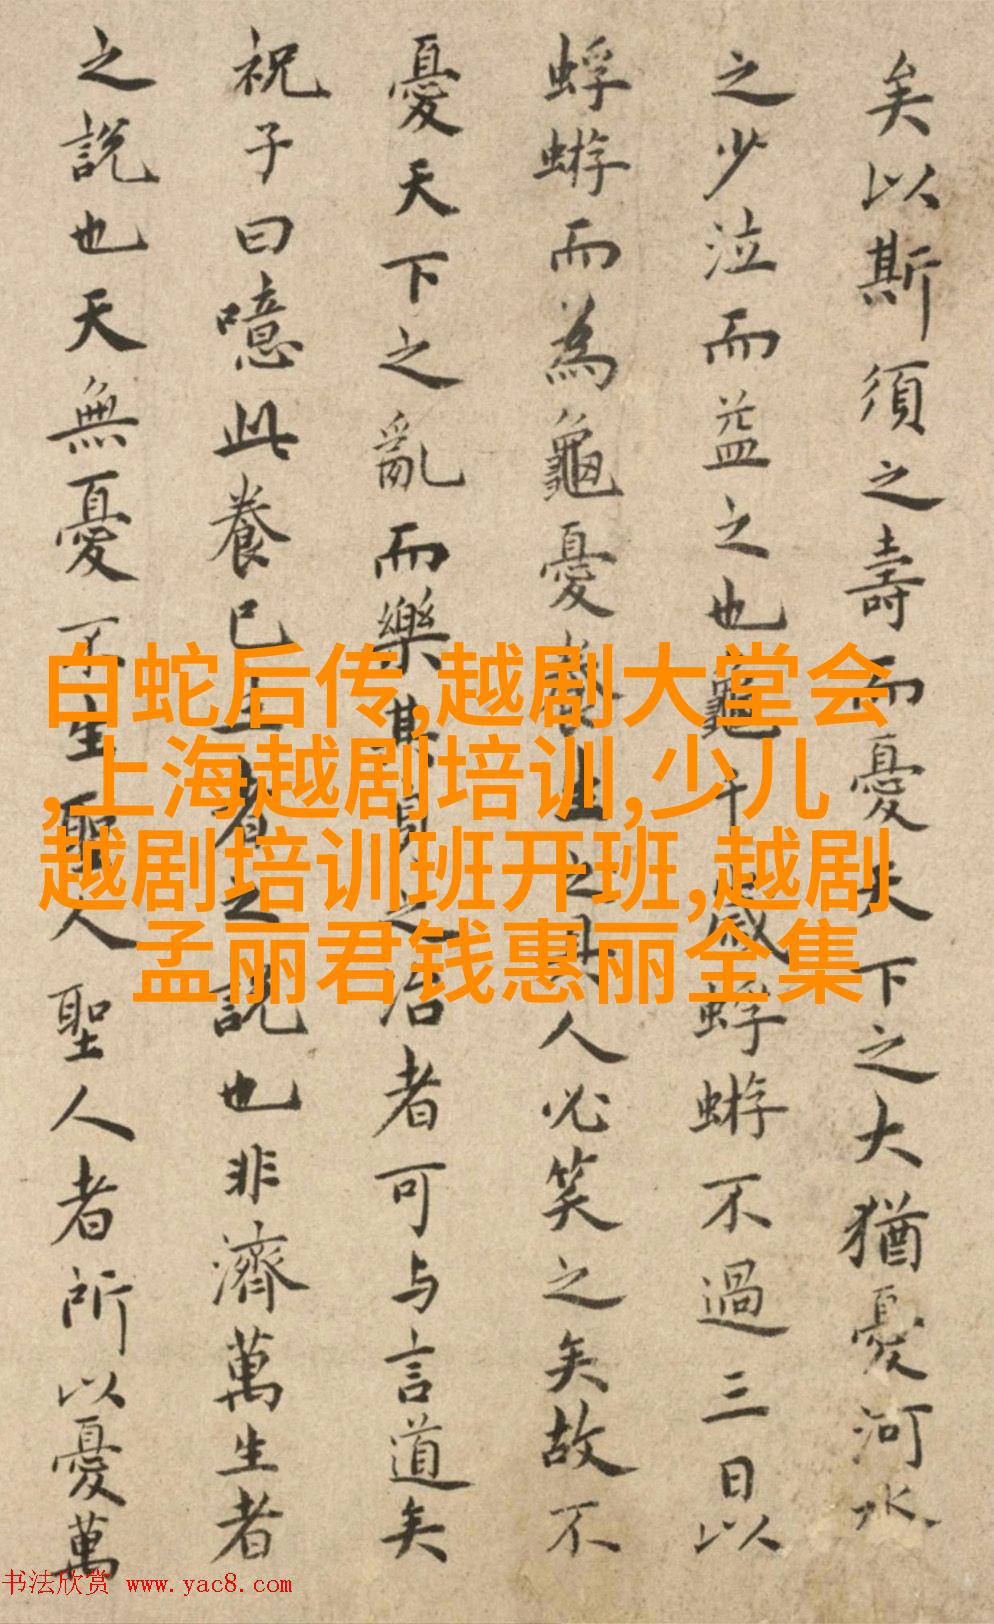 矣以斯須之壽而憂天下之大猶憂河水
之少泣而益之也龜千歲蜉蝣不過三日以
蜉蝣而為龜憂養生之具人必笑之矣故不
憂天下之亂而樂其身之治者可与言道矣
祝子曰噫此養己生者之說也非濟萬生者
之說也天無憂不生聖人聖人者所以憂萬
白蛇后传,越剧大堂会
,上海越剧培训,少儿
越剧培训班开班,越剧
孟丽君钱惠丽全集
书法欣赏 www.yac8.com